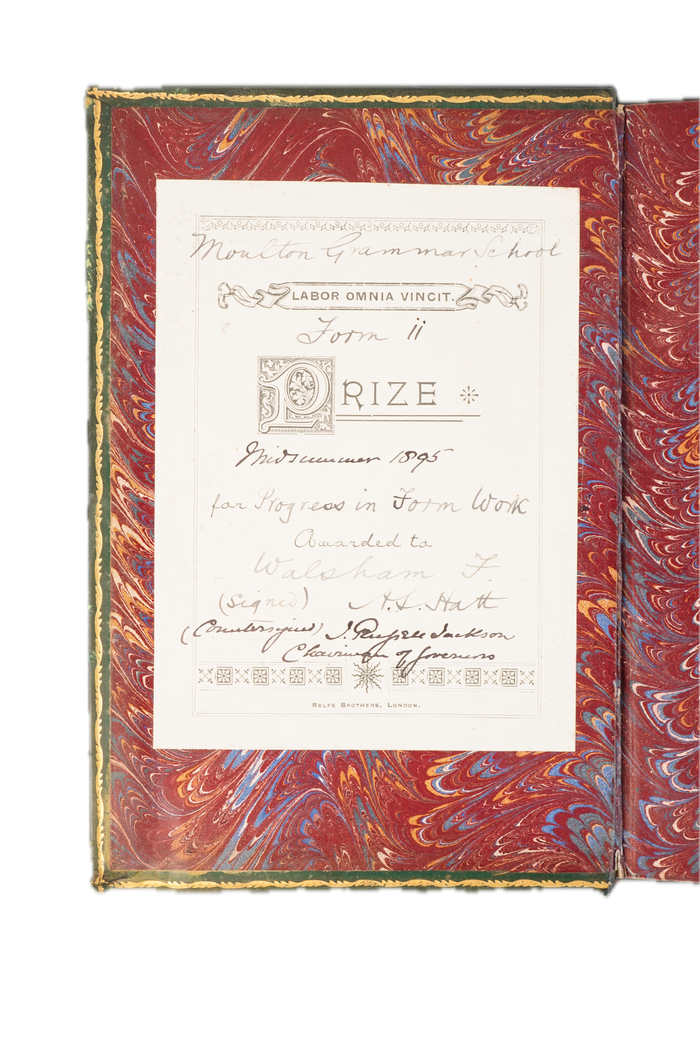 Moulton Grammar School
LABOR OMNIA VINCIT.
Form ii
PRIZE
Midsummer 1895
for Progress in Form Work
Awarded to
Walsham F.
(Signed) A. L. Hatt
(Countersigned) J. Russell Jackson
Chairman of Governors
RELFE BROTHERS, LONDON.